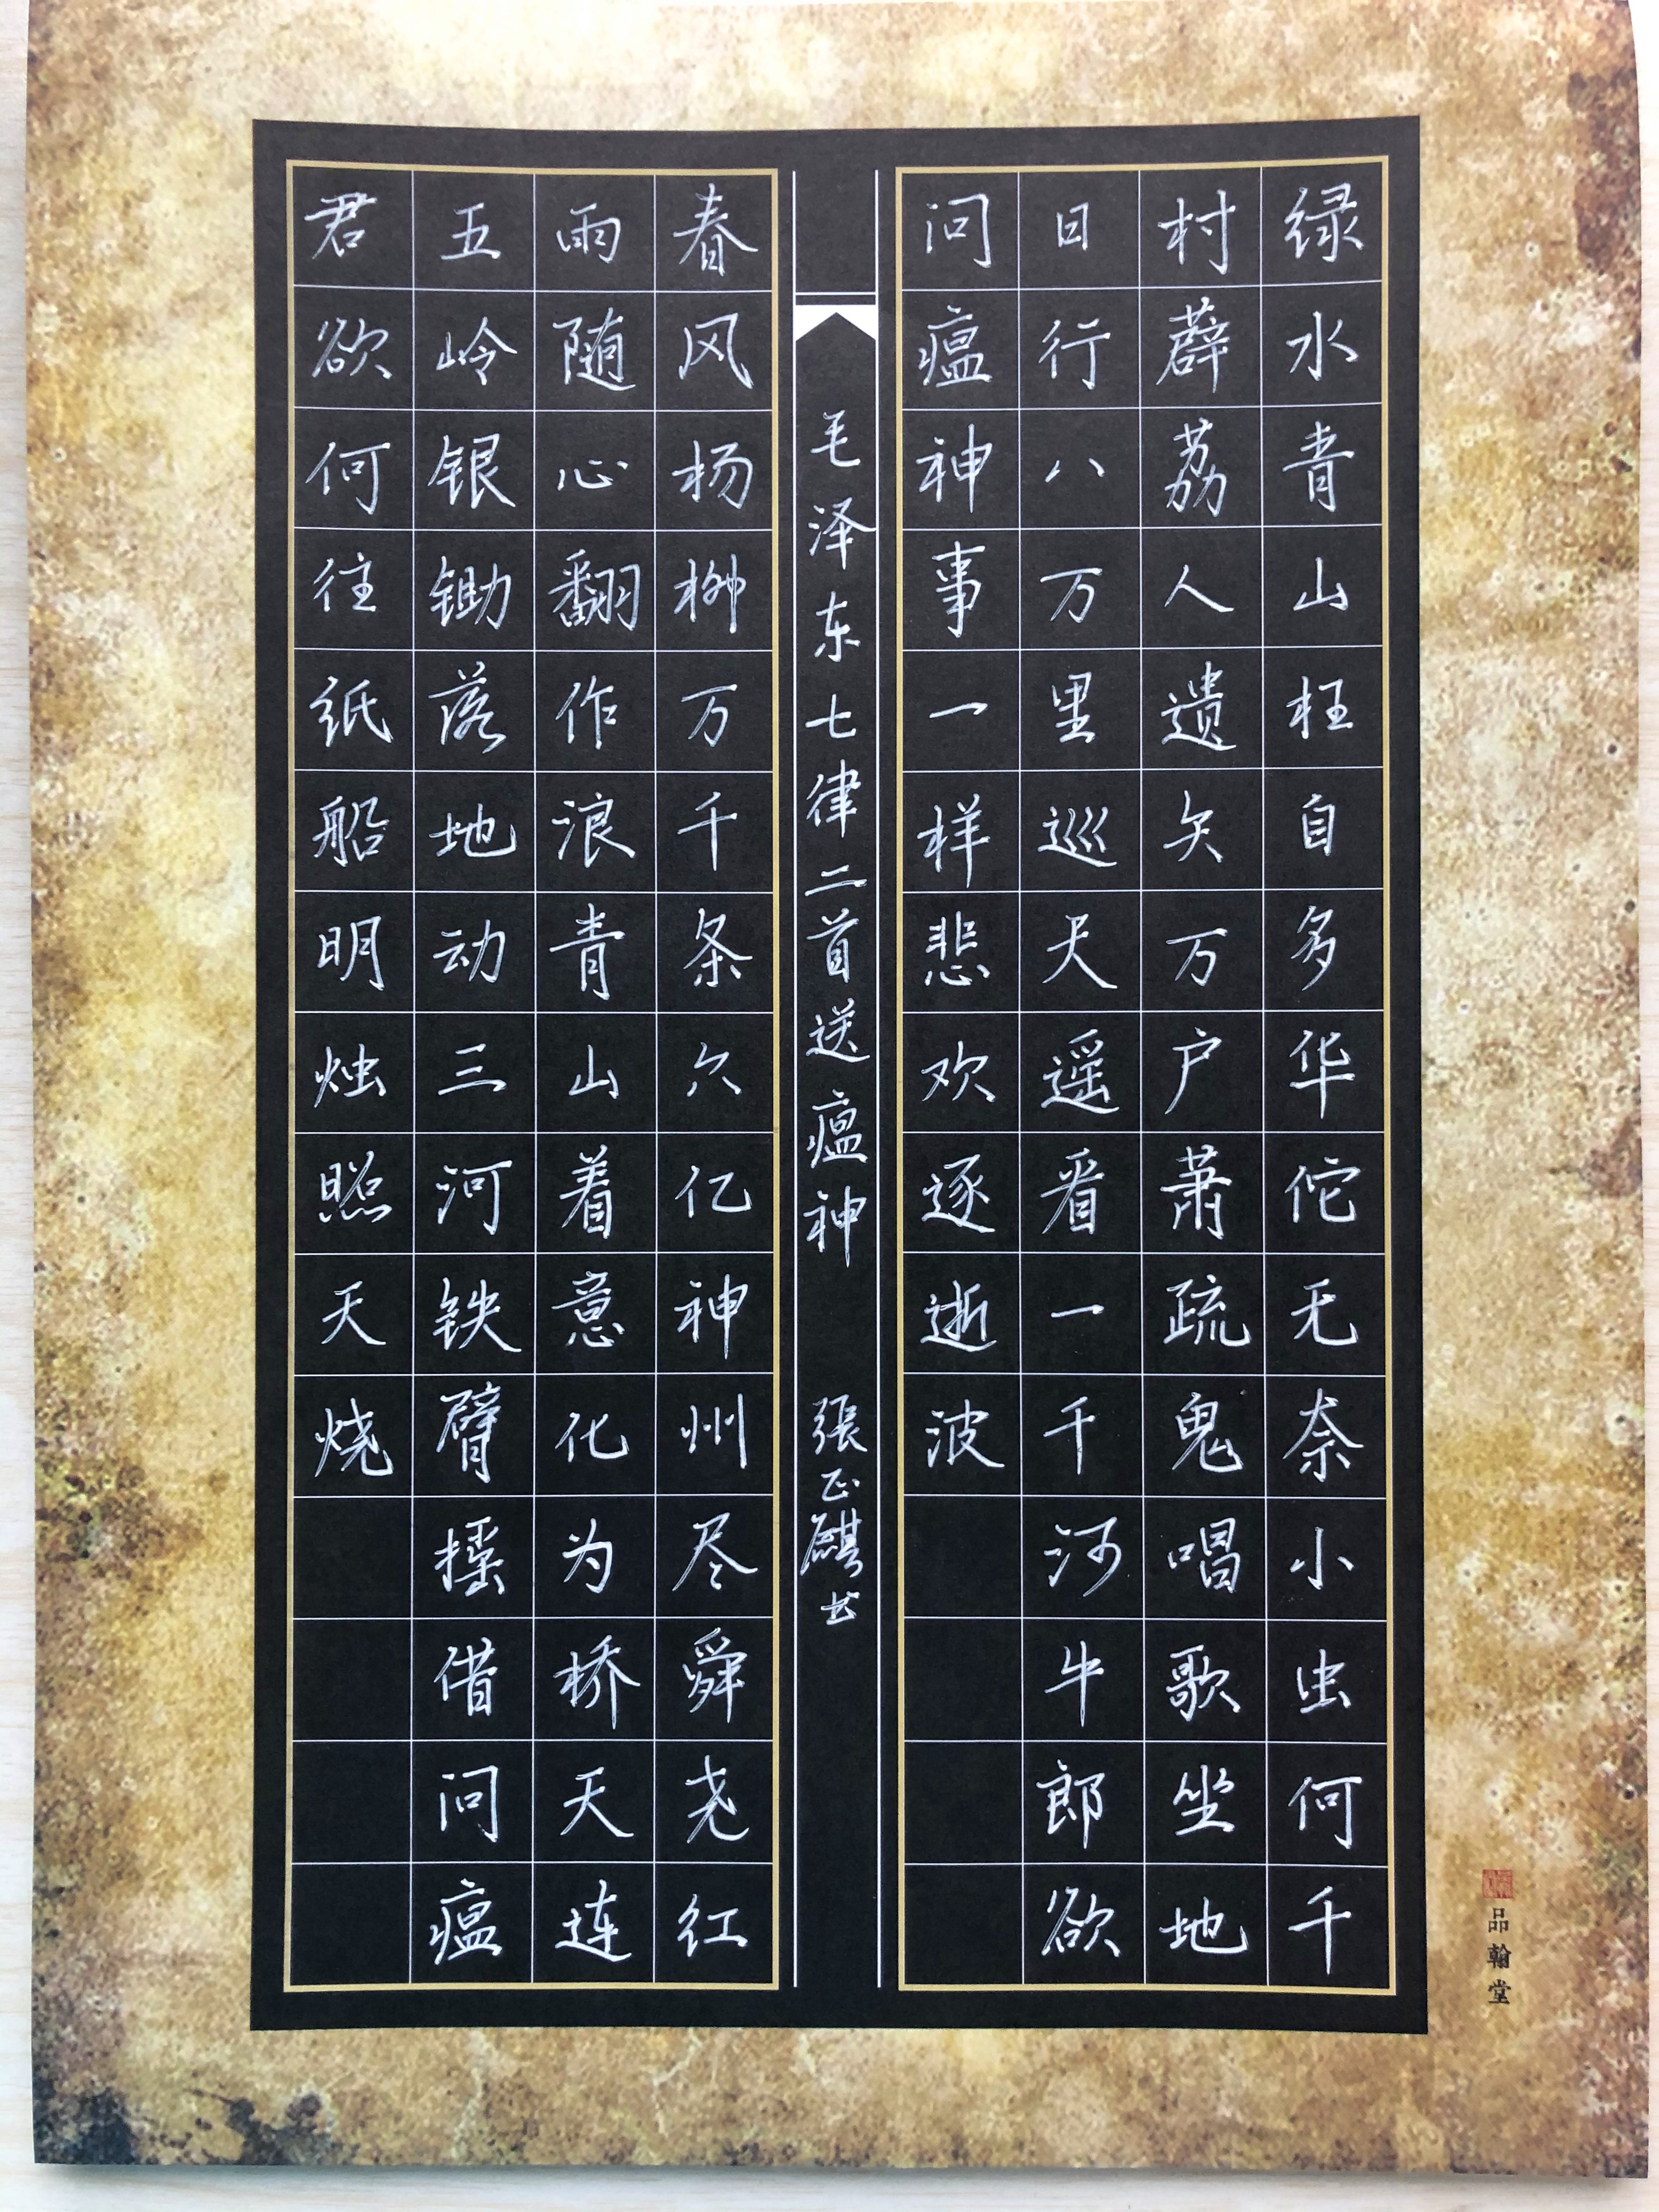 绿水青山枉自多华佗无奈小虫何千
村薜荔人遗矢万户萧疏鬼唱歌坐地
日行八万里巡天遥看一千河牛郎欲
问瘟神事一样悲欢逐逝波
毛泽东七律二首送瘟神 張正麒书
春风杨柳万千条六亿神州尽舜尧红
雨随心翻作浪青山着意化为桥天连
五岭银锄落地动三河铁臂摇借问瘟
君欲何往纸船明烛照天烧
品翰堂